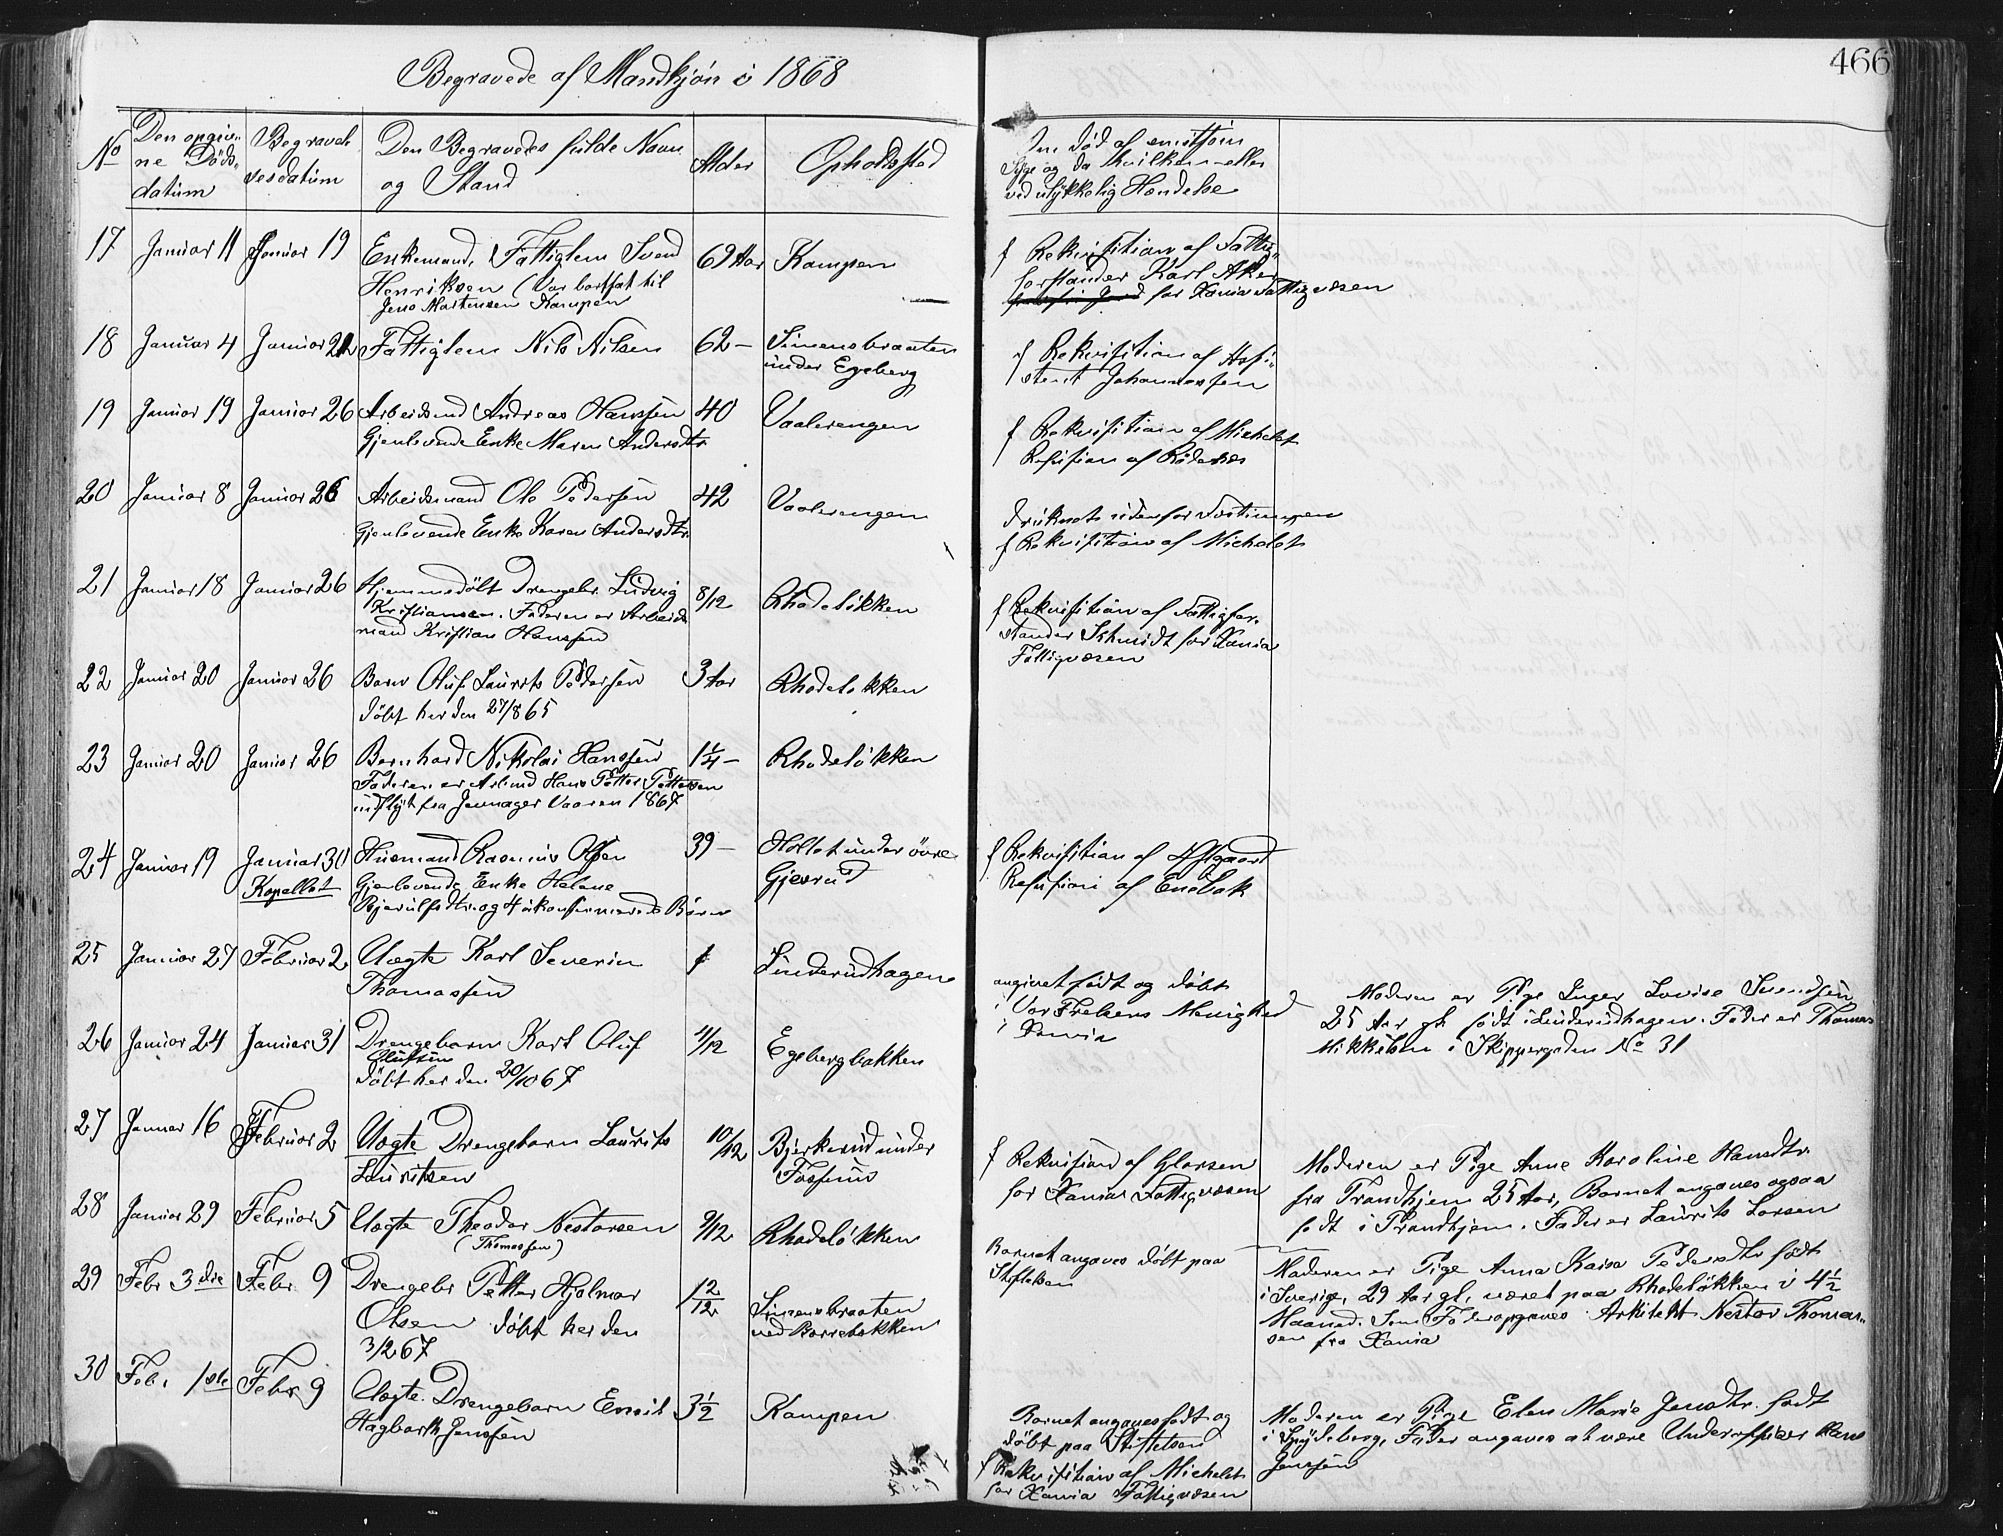 Begravede af Mandkjøn i 1868
466
No
Den opgiv-
ne Døds-
datum
Begravel-
sesdatum
Den Begravedes fulde Navn
og Stand
Alder
Opholdssted
Om død af
Syge og da hvilken - eller
ved ulykkelig Hændelse
17 Januar 11 Januar 19 Enkemand, Fattiglem Svend 69 Aar Kampen
Henriksen (Var bortsat til
Jens Mortensen Kampen
f Rekvisition af Fattig-
forstander Karl Aker
for Xania Fattigvæsen
18 Januar 4 Januar 22 Fattiglem Nils Nilsen 62 - Simensbraaten
under Egeberg
f Rekvisition af
Johannessen
19 Januar 19 Januar 26 Arbeidsmd Andreas Hanssen 40 Vaalerengen
Gjenlevende Enke Maren Andersdtr
f Rekvisition af Michelet
Refusion af Rødenæs
20 Januar 8 Januar 26 Arbeidsmand Ole Pedersen 42 Vaalerengen
Gjenlevende Enke Karen Andersdtr.
druknet udenfor
f Rekvisition af Michelet
21 Januar 18 Januar 26 Hjemmedøbt Drengebr. Ludvig 8/12 Rhodeløkken
Kristiansen. Faderen er Arbeids
mand Kristian Hanssen
f Rekvisition af Fattigfor-
stander Schmidt for Xania
Fattigvæsen
22 Januar 20 Januar 26 Barn Oluf Laurits Pedersen 3 Aar Rhodeløkken
døbt her den 27/8 65
23 Januar 20 Januar 26 Bernhard Nikolai Hanssen 1 1/4 - Rhodeløkken
Faderen er Arbmd Hans Petter Pettersen
indflyt fra Jevnager Vaaren 1867
24 Januar 19 Januar 30 Husmand Rasmus Olsen 39 - Holtet under øvre
Kapellet Gjenlevende Enke Helene Gjesrud
Bjerulfsdtr. og 4 ukonfirmerede Børn
f Rekvisition af
Refusion af Enebak
25 Januar 27 Februar 2 Uægte Karl Severin 1 Linderudhagen
Thomassen
angivet født og døbt
i Vor Frelsers Menighed
i Xania
Moderen er Pige Inger Lovise Svendsen
25 Aar gl. født i Linderudhagen. Fader er Thomas
Mikkelsen i Skippergaden No 31
26 Januar 24 Januar 31 Drengebarn Karl Oluf 4/12 Egebergbakken
Olufsen
døbt her den 20/10 67
27 Januar 16 Februar 2 Uægte Drengebarn Laurits 10/12 Bjerkerud under
Lauritsen Fossum
f Rekvisition af Glarsen
for Xania Fattigvæsen
Moderen er Pige Anne Karoline Hansdtr.
fra Trondhjem 25 Aar, Barnet angaves ogsaa
født i Trondhjem. Fader er Laurits Larsen
28 Januar 29 Februar 5 Uægte Theodor Nestorsen 9/12 Rhodeløkken
(Thomassen)
Barnet angaves døbt paa
Stiftelsen
Moderen er Pige Anna Kaisa Pedersdtr født
i Sverige, 29 Aar gl., været paa Rhodeløkken i 4 1/2
Maaned. Som Fader opgaves Arkitekt Nestor Thomas-
sen fra Xania
29 Febr 3die Febr 9 Drengebr Petter Hjalmar 12/12 Simensbraaten
Olsen døbt her den ved Borrebakken
3/2 67
30 Feb. 1ste Febr 9 Uægte Drengebarn Emil 3 1/2 Kampen
Hagbarth Jenssen
Barnet angaves født og
døbt paa Stiftelsen
f Rekvisition af Michelet
for Xania Fattigvæsen
Moderen er Pige Elen Marie Jensdtr. født
i Spydeberg, Fader angaves at være Underofficer Hans
Jenssen